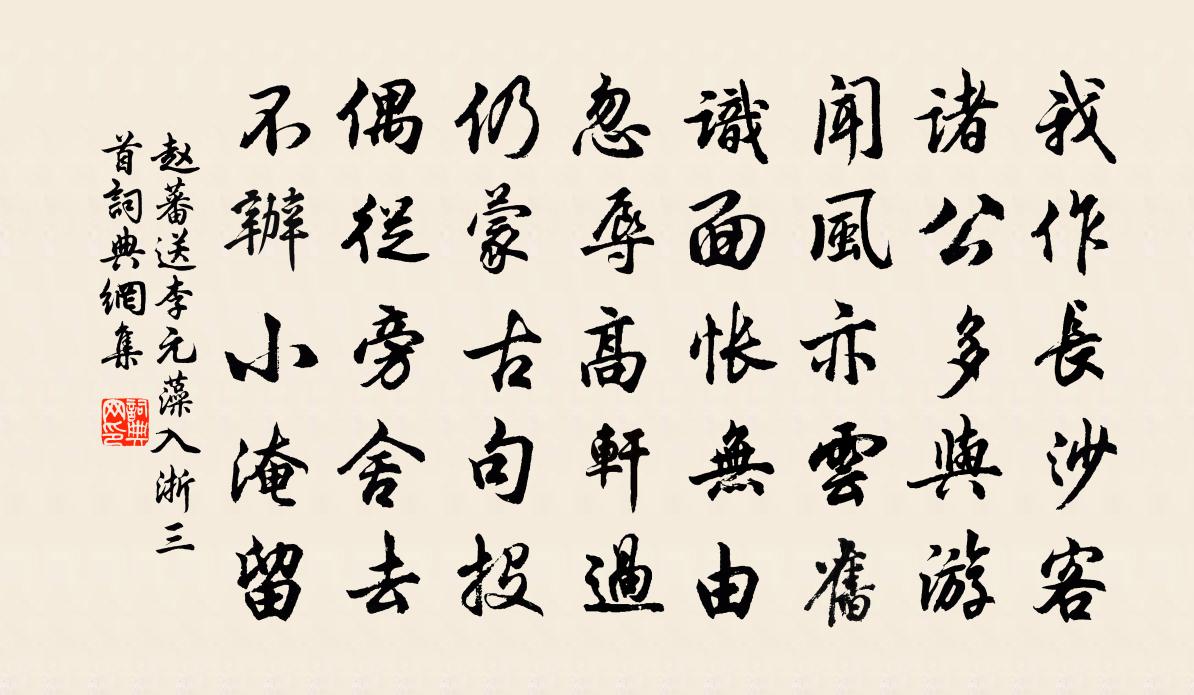 我作長沙客
諸公多與游
聞風亦雲舊
識面悵無由
忽辱高軒過
仍蒙古句投
偶從旁舍去
不辦小淹留
赵蕃送李元藻入浙三
首詞典網集
詞典网印